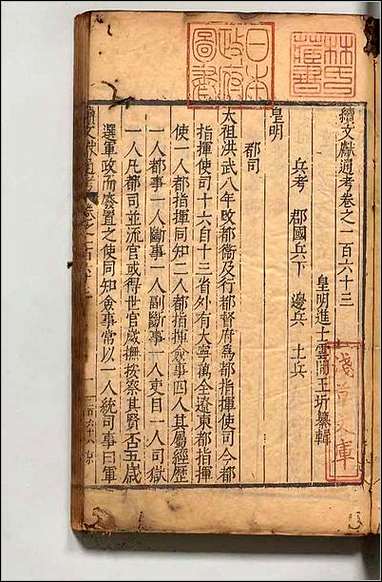 續文獻通考卷之一百六十三
皇明進士雲間王圻纂輯
兵考 郡國兵下 邊兵 土兵
皇明
都司
太祖洪武八年改都衛及行都督府爲都指揮使司今都
指揮使司十六自十三省外有大寧萬全遼東都指揮
使一人都指揮同知二人都指揮僉事四人其屬經歷
一人都事一人斷事一人副斷事一人吏目一人司獄
一人凡都司並流官或得世官歲撫按察其賢否五歲
選軍政而廢置之使同知僉事常以一人統司事曰軍
續文獻通考
日本
政府
圖書
林氏
藏書
淺草文庫